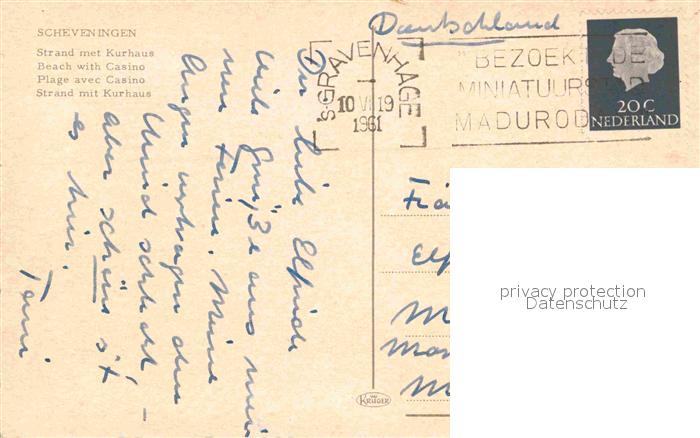 SCHEVENINGEN
Strand met Kurhaus
Beach with Casino
Plage avec Casino
Strand mit Kurhaus
Deutschland
'S-GRAVENHAGE
10 VI 19
1961
BEZOEK DE
MINIATUURSTAD
MADUROD
20 C
NEDERLAND
liebe Elfriede
viele Grüße aus
Ferien. Meine
Augen vertragen den
Wind schlecht -
aber schön ist
es hier.
Toni
Frä
Elf
M
Mar
M
KRUGER
privacy protection
Datenschutz